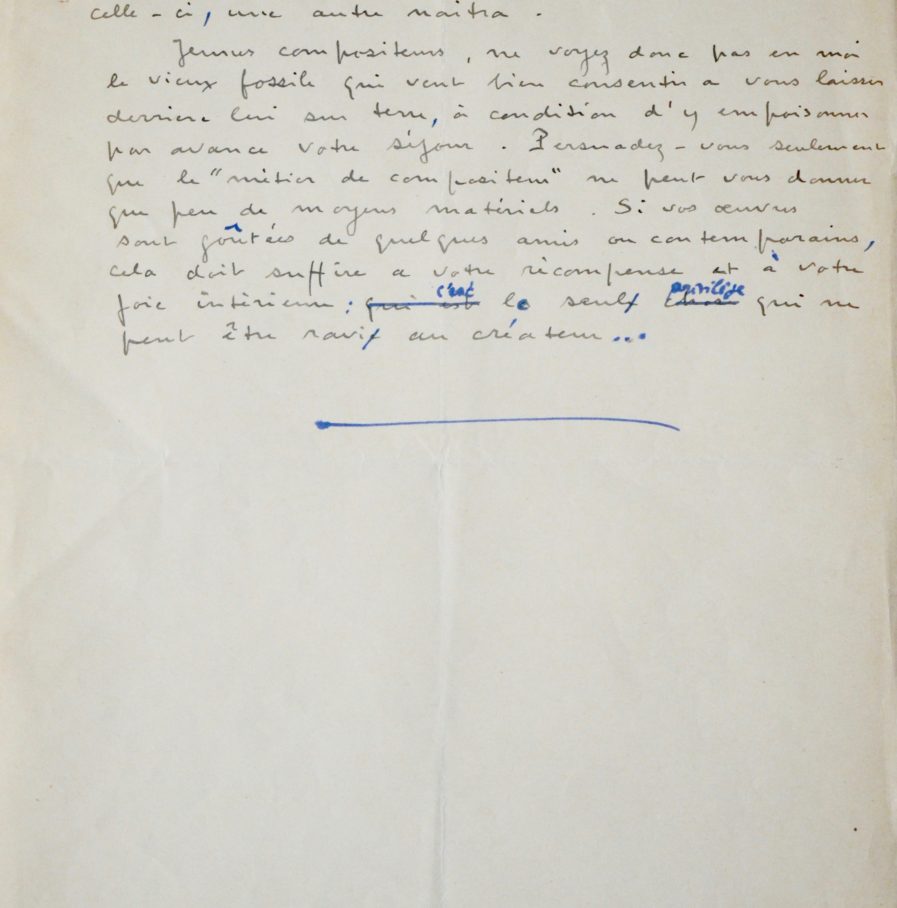 celle-ci, une autre naitra.
Jeunes compositeurs, ne voyez donc pas en moi
le vieux fossile qui veut bien consentir a vous laisser
derriere lui sur terre, à condition d'y empoisonner
par avance votre séjour. Persuadez-vous seulement
que le "métier de compositeur" ne peut vous donner
que peu de moyens matériels. Si vos œuvres
sont goûtées de quelques amis ou contemporains,
cela doit suffire a votre récompense et à votre
joie intérieure : qui est c'est le seul chose privilège qui ne
peut être ravi au créateur...